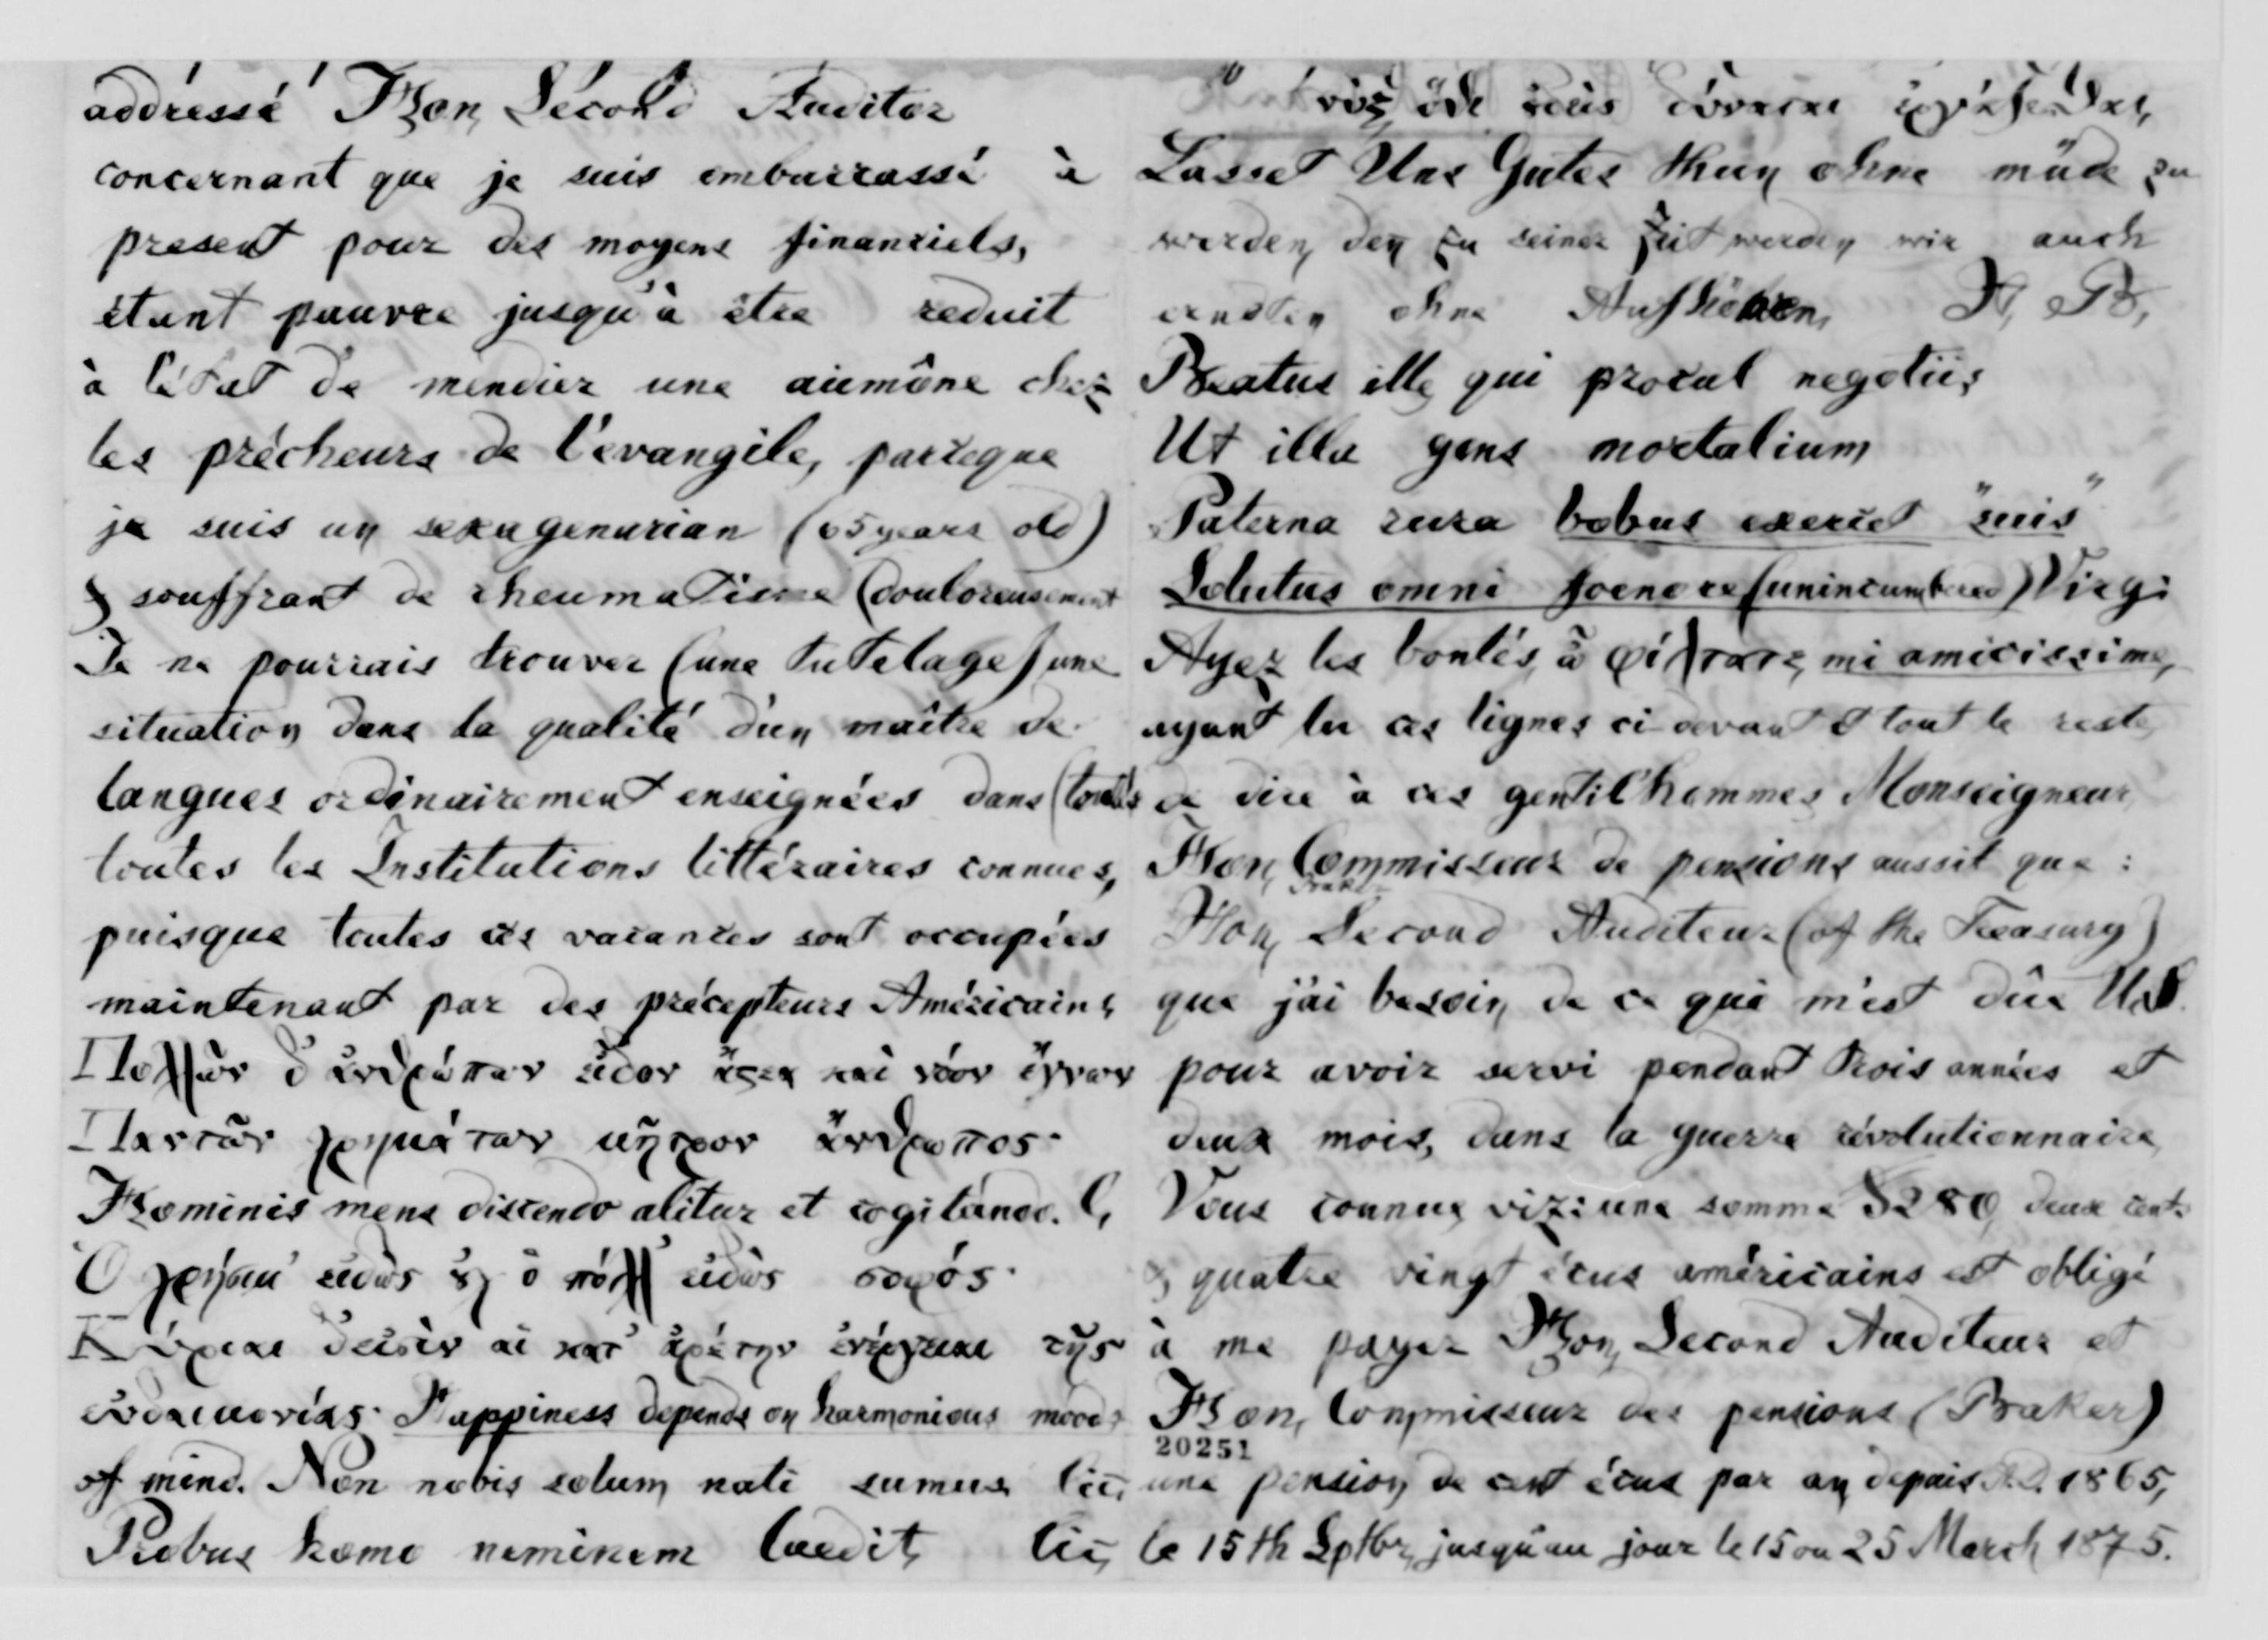 addréssé Hon, Sécond Auditor
concernant que je suis embarrassé à
present pour des moyens financiels,
étant pauvre jusqu'à être reduit
à l'état de mendier une aumône chez
les prêcheurs de l'evangile, parceque
je suis un sexagenarian (65 years old)
& souffrant de rheumatisme (douloreusement
Je ne pourrais trouver (une tutelage) une
situation dans la qualité d'un maître de
langues ordinairement enseignées dans (toutes
toutes les Institutions littéraires connues,
puisque toutes ces vacances sont occupées
maintenant par des précepteurs Américains
Πολλῶν δ' ἀνθρώπων ἴδον ἄστεα καὶ νόον ἔγνων
Παντῶν χρημάτων μῆτρον ἄνθρωπος·
Hominis mens discendo alitur et cogitando. C,
Ὁ χρήσιμ' εἰδὼς οὐχ ὁ πόλλ' εἰδὼς σοφός·
Κύριαι δεισὶν αἱ κατ' ἀρέτην ἐνέργειαι τῆς
εὐδαιμονίας· Happiness depends on harmonious moods
of mind. Non nobis solum nati sumus Cic,
Probus homo neminem laedit, Cic,
Lasset Uns Gutes thun ohne müde zu
werden, den zu seiner Zeit werden wir auch
erndten ohne Aufhören, H, B,
Beatus ille, qui procul negotiis
Ut illa gens mortalium
Paterna rura bobus exercet "suis"
Solutus omni foenore (unincumbered) Virg:
Ayez les bontés, ὦ φίλτατε, mi amicissime,
ayant lu ces lignes ci-devant & tout le reste,
de dire à ces gentil'hommes, Monseigneur,
Hon, Commisseur de pensions aussit que:
Hon, Second Auditeur (of the Treasury)
que j'ai besoin de ce qui m'est dûe U.S.
pour avoir servi pendant trois années et
deux mois, dans la guerre révolutionnaire,
Vous connue, viz: une somme $280, deux cents
& quatre vingt écus américains est obligé
à me payer Hon, Second Auditeur et
Hon, Commisseur des pensions (Baker)
20251
une pension de cent écus par an depuis A.D. 1865,
le 15th Sptbr, jusqu'au jour le 15 ou 25 March 1875.